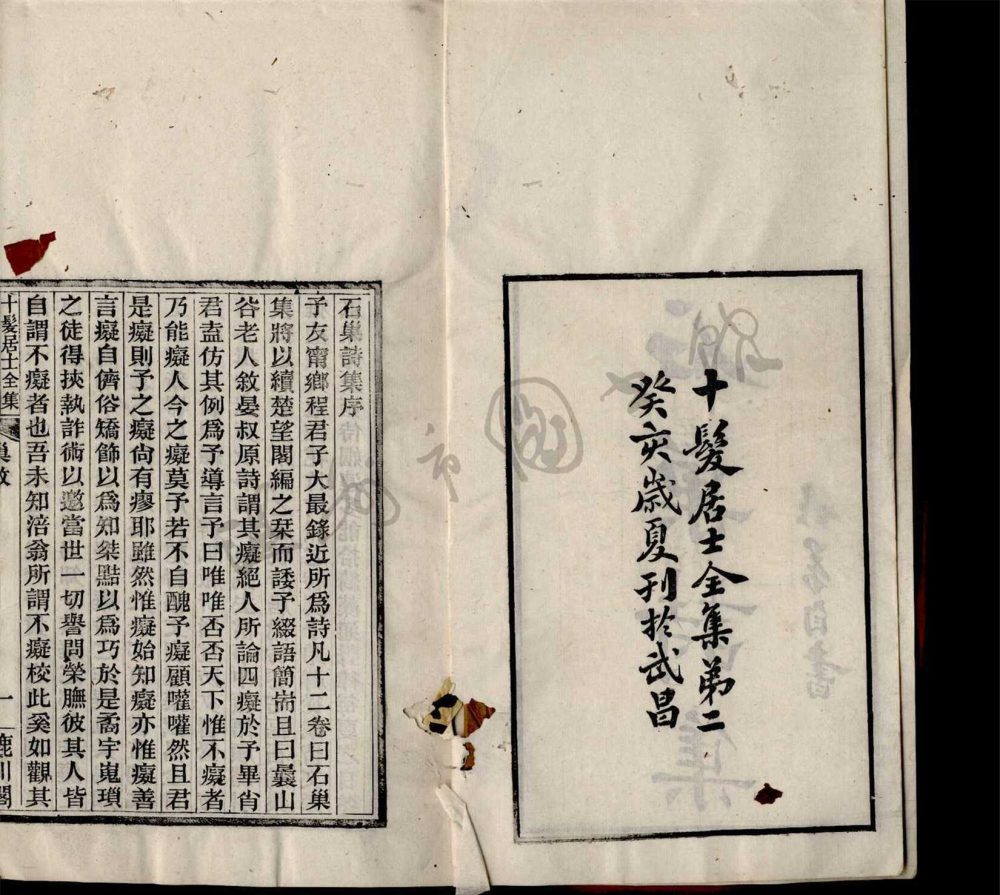 十髮居士全集弟二
癸亥歲夏刊於武昌
石巢詩集序
予友甯鄉程君子大最錄近所爲詩凡十二卷曰石巢
集將以續楚望閣編之栞而諉予綴語簡耑且曰曩山
谷老人敘晏叔原詩謂其癡絕人所論四癡於予畢肖
君盍仿其例爲予導言予曰唯唯否否天下惟不癡者
乃能癡人今之癡莫予若不自醜予癡顧嚾嚾然且君
是癡則予之癡尙有瘳耶雖然惟癡始知癡亦惟癡善
言癡自儕俗矯飾以爲知桀黠以爲巧於是矞宇嵬瑣
之徒得挾執詐術以邀當世一切譽問榮膴彼其人皆
自謂不癡者也吾未知涪翁所謂不癡校此奚如觀其
十髮居士全集
一
鹿川閣